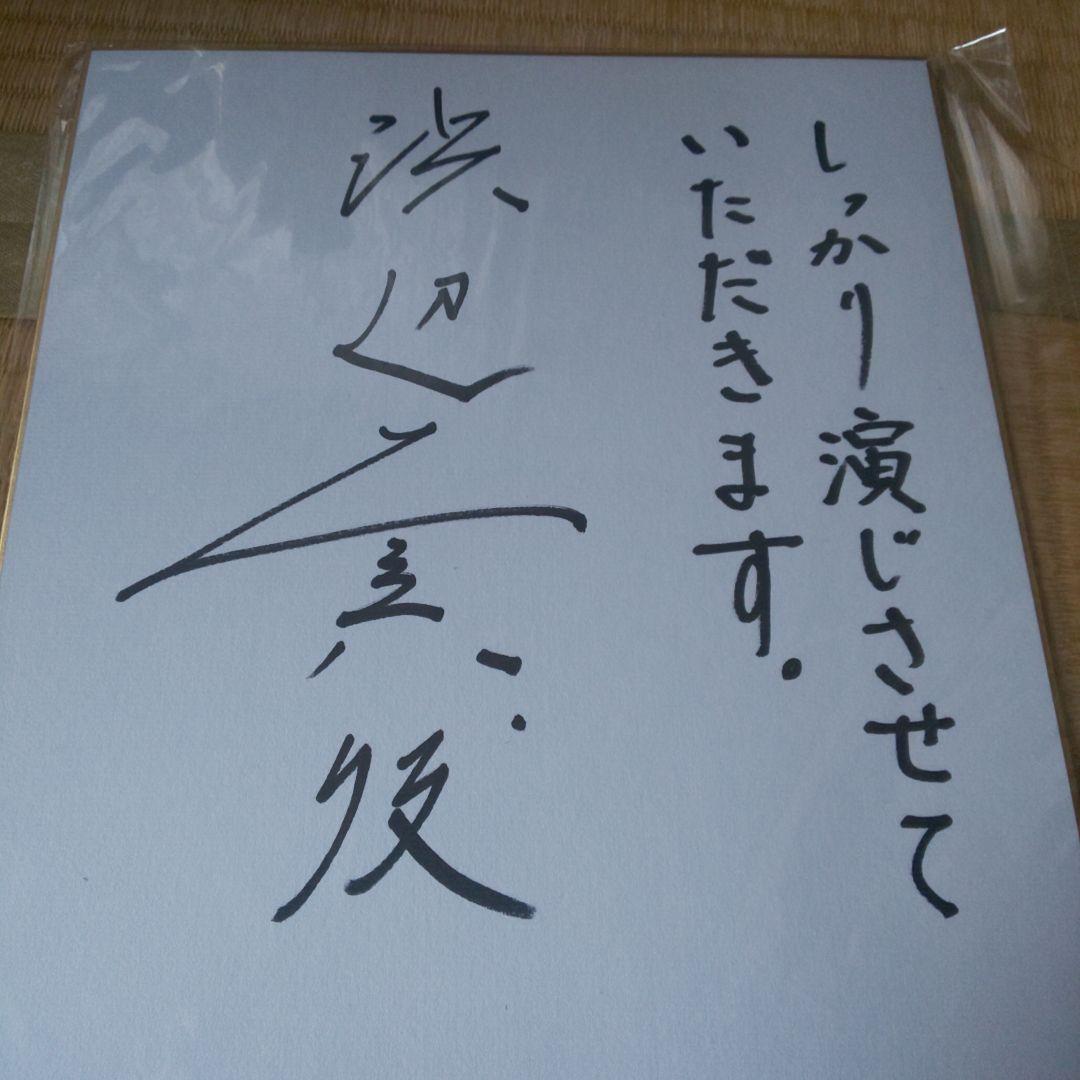 しっかり演じさせて
いただきます.
渡辺